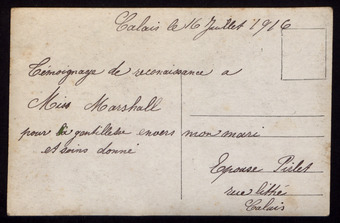 Calais le 16 Juillet 1916
Témoignage de reconaissance a
Miss Marshall
pour sa gentillesse envers mon mari
et soins donné
Epouse Pislet
rue littré
Calais